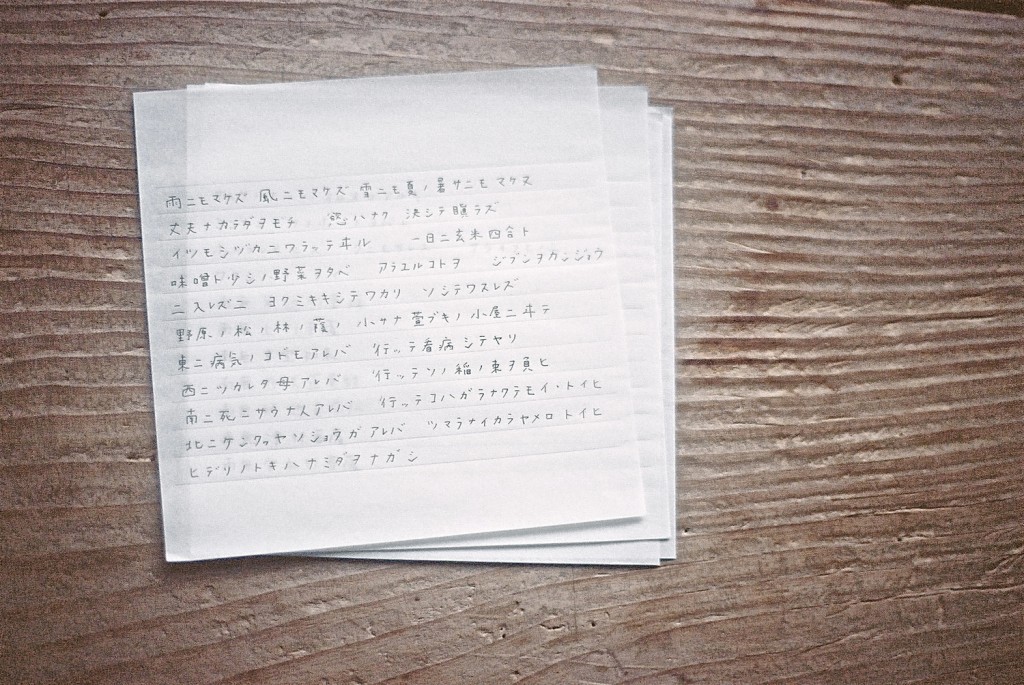 雨ニモマケズ 風ニモマケズ 雪ニモ夏ノ暑サニモ マケヌ
丈夫ナカラダヲモチ 慾ハナク 決シテ瞋ラズ
イツモシヅカニワラッテヰル 一日ニ玄米四合ト
味噌ト少シノ野菜ヲタベ アラユルコトヲ ジブンヲカンジョウ
ニ入レズニ ヨクミキキシテワカリ ソシテワスレズ
野原ノ松ノ林ノ蔭ノ 小サナ萱ブキノ小屋ニヰテ
東ニ病気ノコドモアレバ 行ッテ看病シテヤリ
西ニツカレタ母アレバ 行ッテソノ稲ノ束ヲ負ヒ
南ニ死ニサウナ人アレバ 行ッテコハガラナクテモイ・トイヒ
北ニケンクヮヤソショウガアレバ ツマラナイカラヤメロトイヒ
ヒデリノトキハナミダヲナガシ